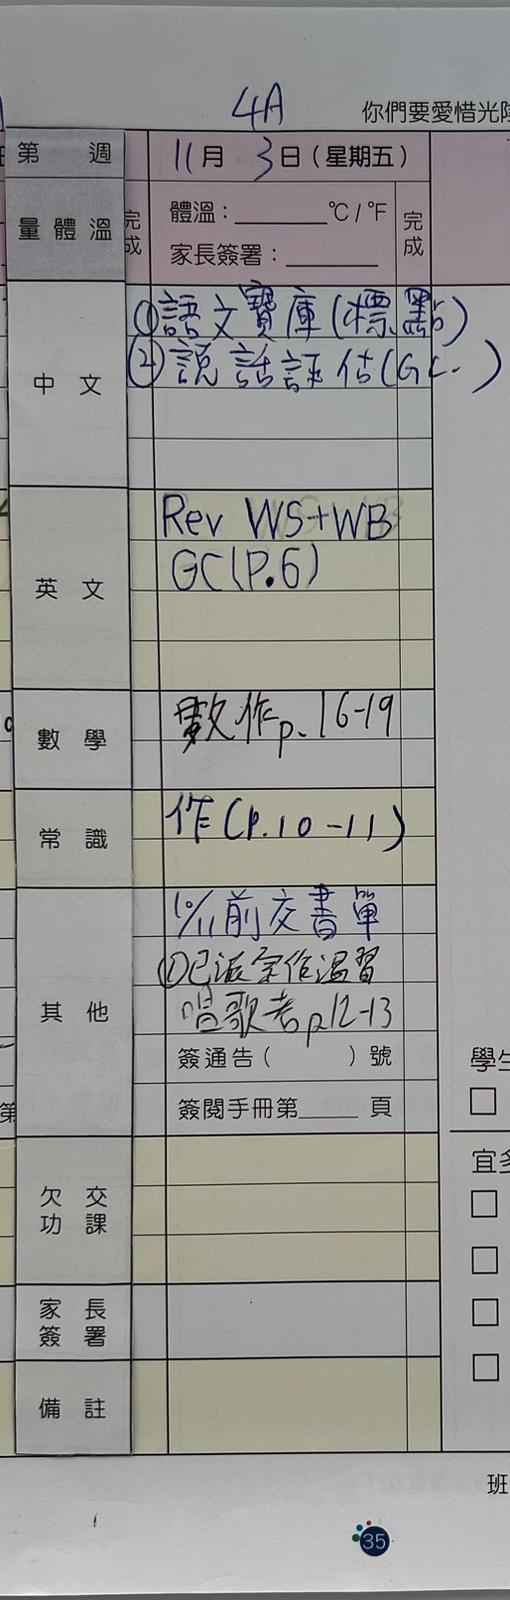 4A
你們要愛惜光陰
第 週
11月 3日（星期五）
量體溫
完成
體溫：________°C / °F
家長簽署：________
完成
中 文
①語文寶庫(標點)
②說話評估(GC.)
英 文
Rev WS+WB
GC(P.6)
數 學
數作p.16-19
常 識
作(P.10-11)
其 他
10/11前交書單
①已派宗作溫習
唱歌考p12-13
簽通告( )號
簽閱手冊第____頁
學生
欠 交
功 課
宜多
家 長
簽 署
備 註
班
35